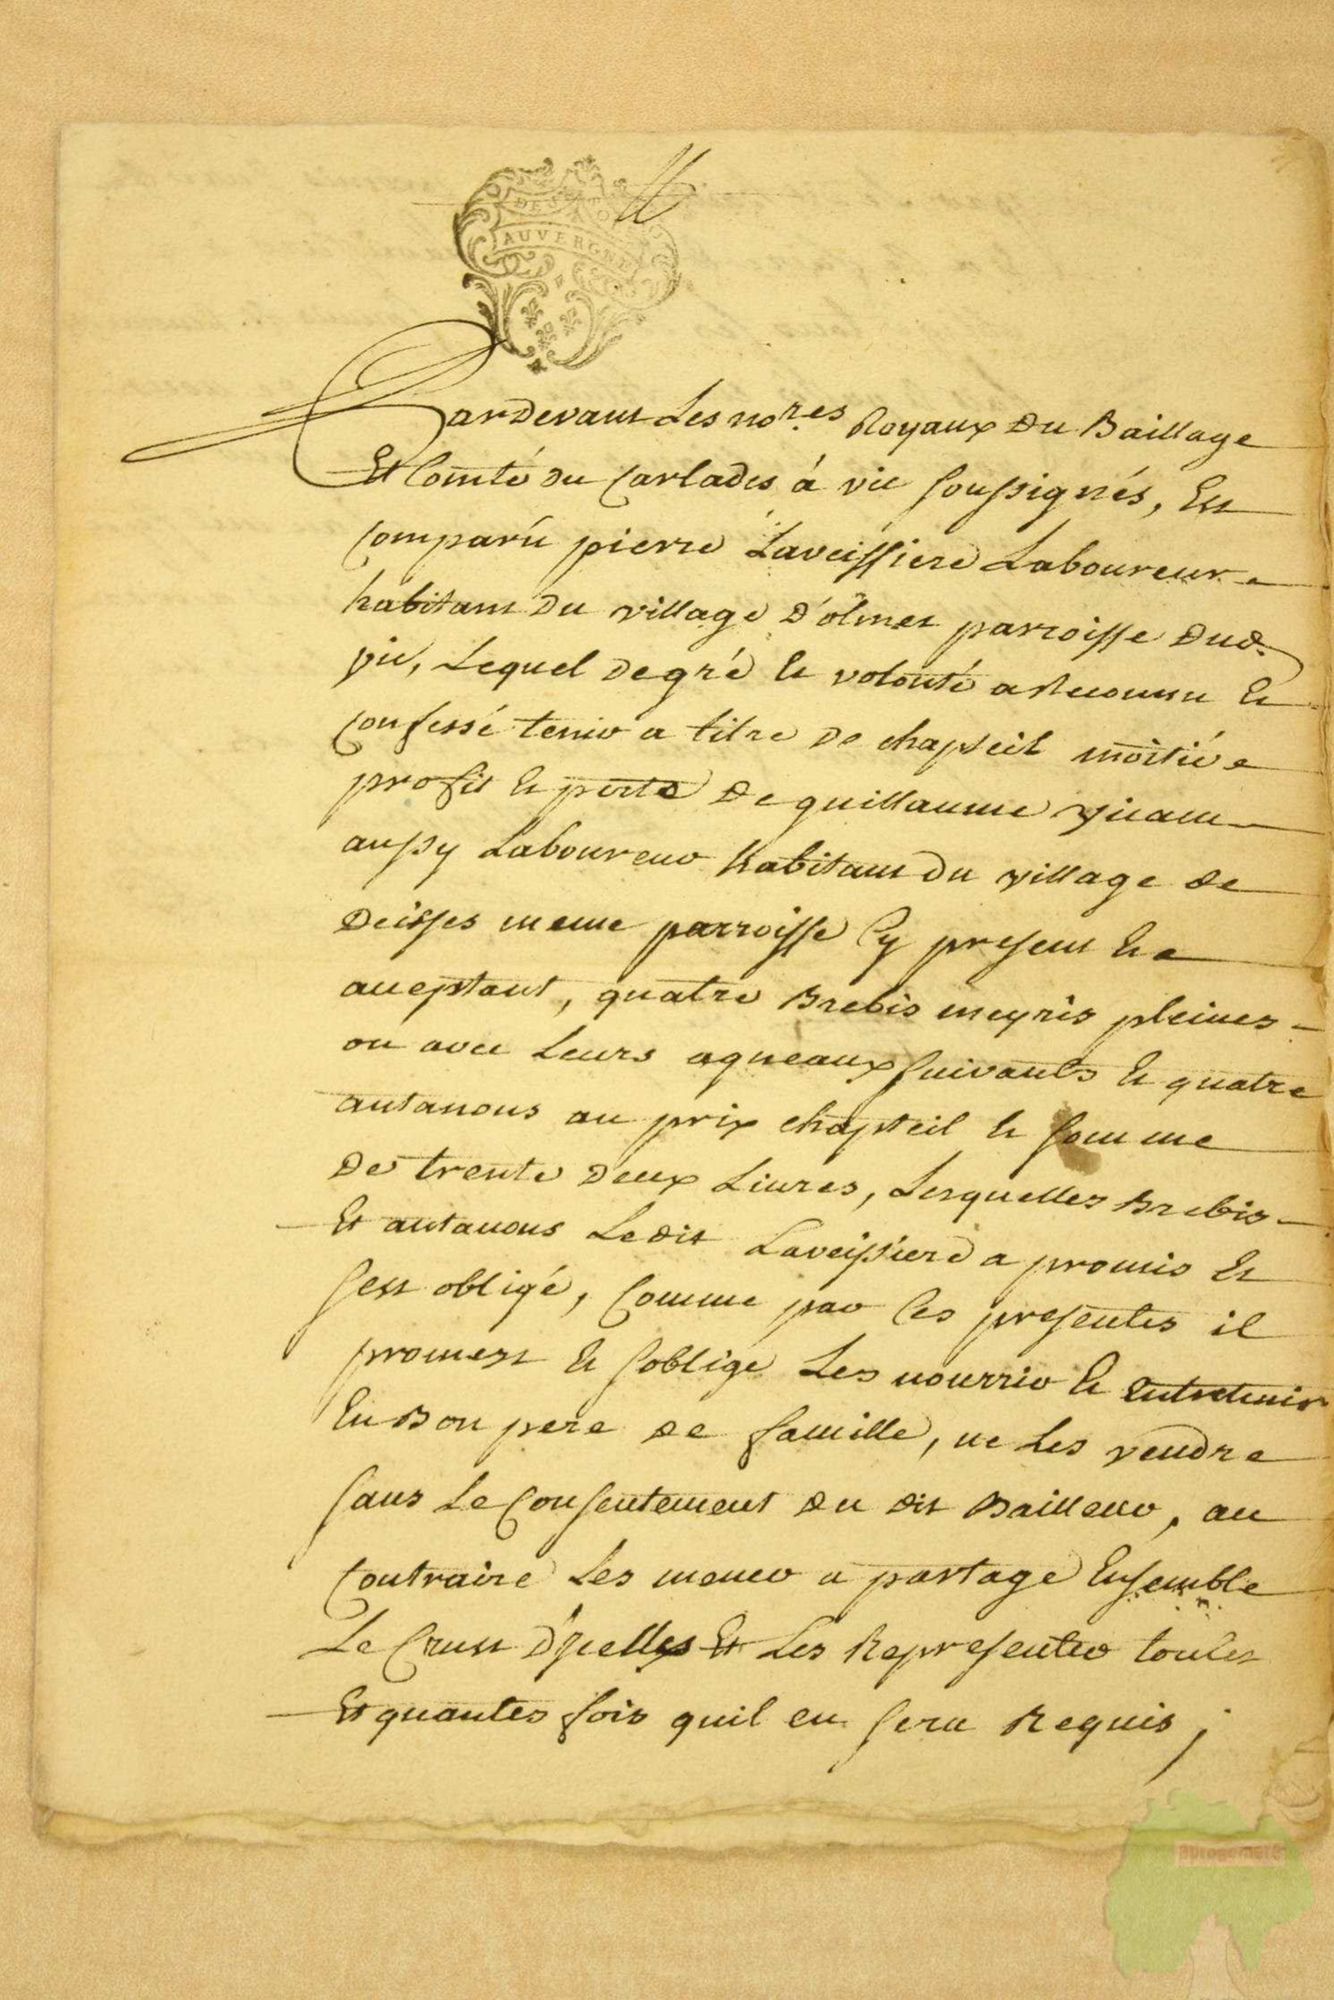 AUVERGNE
Pardevant Les no.res Royaux Du Baillage
Et Comté du Carladès à vic soussignés, Est
comparü pierre Laveissiere Laboureur
habitant Du village D'olmet parroisse dud.
vic, Lequel de gré et volonté a Reconnu Et
confessé tenir a titre de chapteil moitié
profit et perte De guillaume
aussy Laboureur habitant Du village de
Deisses meme parroisse Cy present Et
aceptant, quatre Brebis meyris pleines
ou avec Leurs agneaux suivants Et quatre
autanous au prix chapteil Et somme
De trente Deux Livres, Lesquelles Brebis
Et autanous Ledit Laveissiere a promis Et
sest obligé, Comme par Ces presentes il
promest Et soblige Les nourrir Et Entretenir
En Bon pere de famille, ne Les vendre
sans Le Consentement du dit Bailleur, au
Contraire Les mener a partage Ensemble
Le Crust D'jcelles Et Les Representer toutes
Et quantes fois quil en sera Requis;